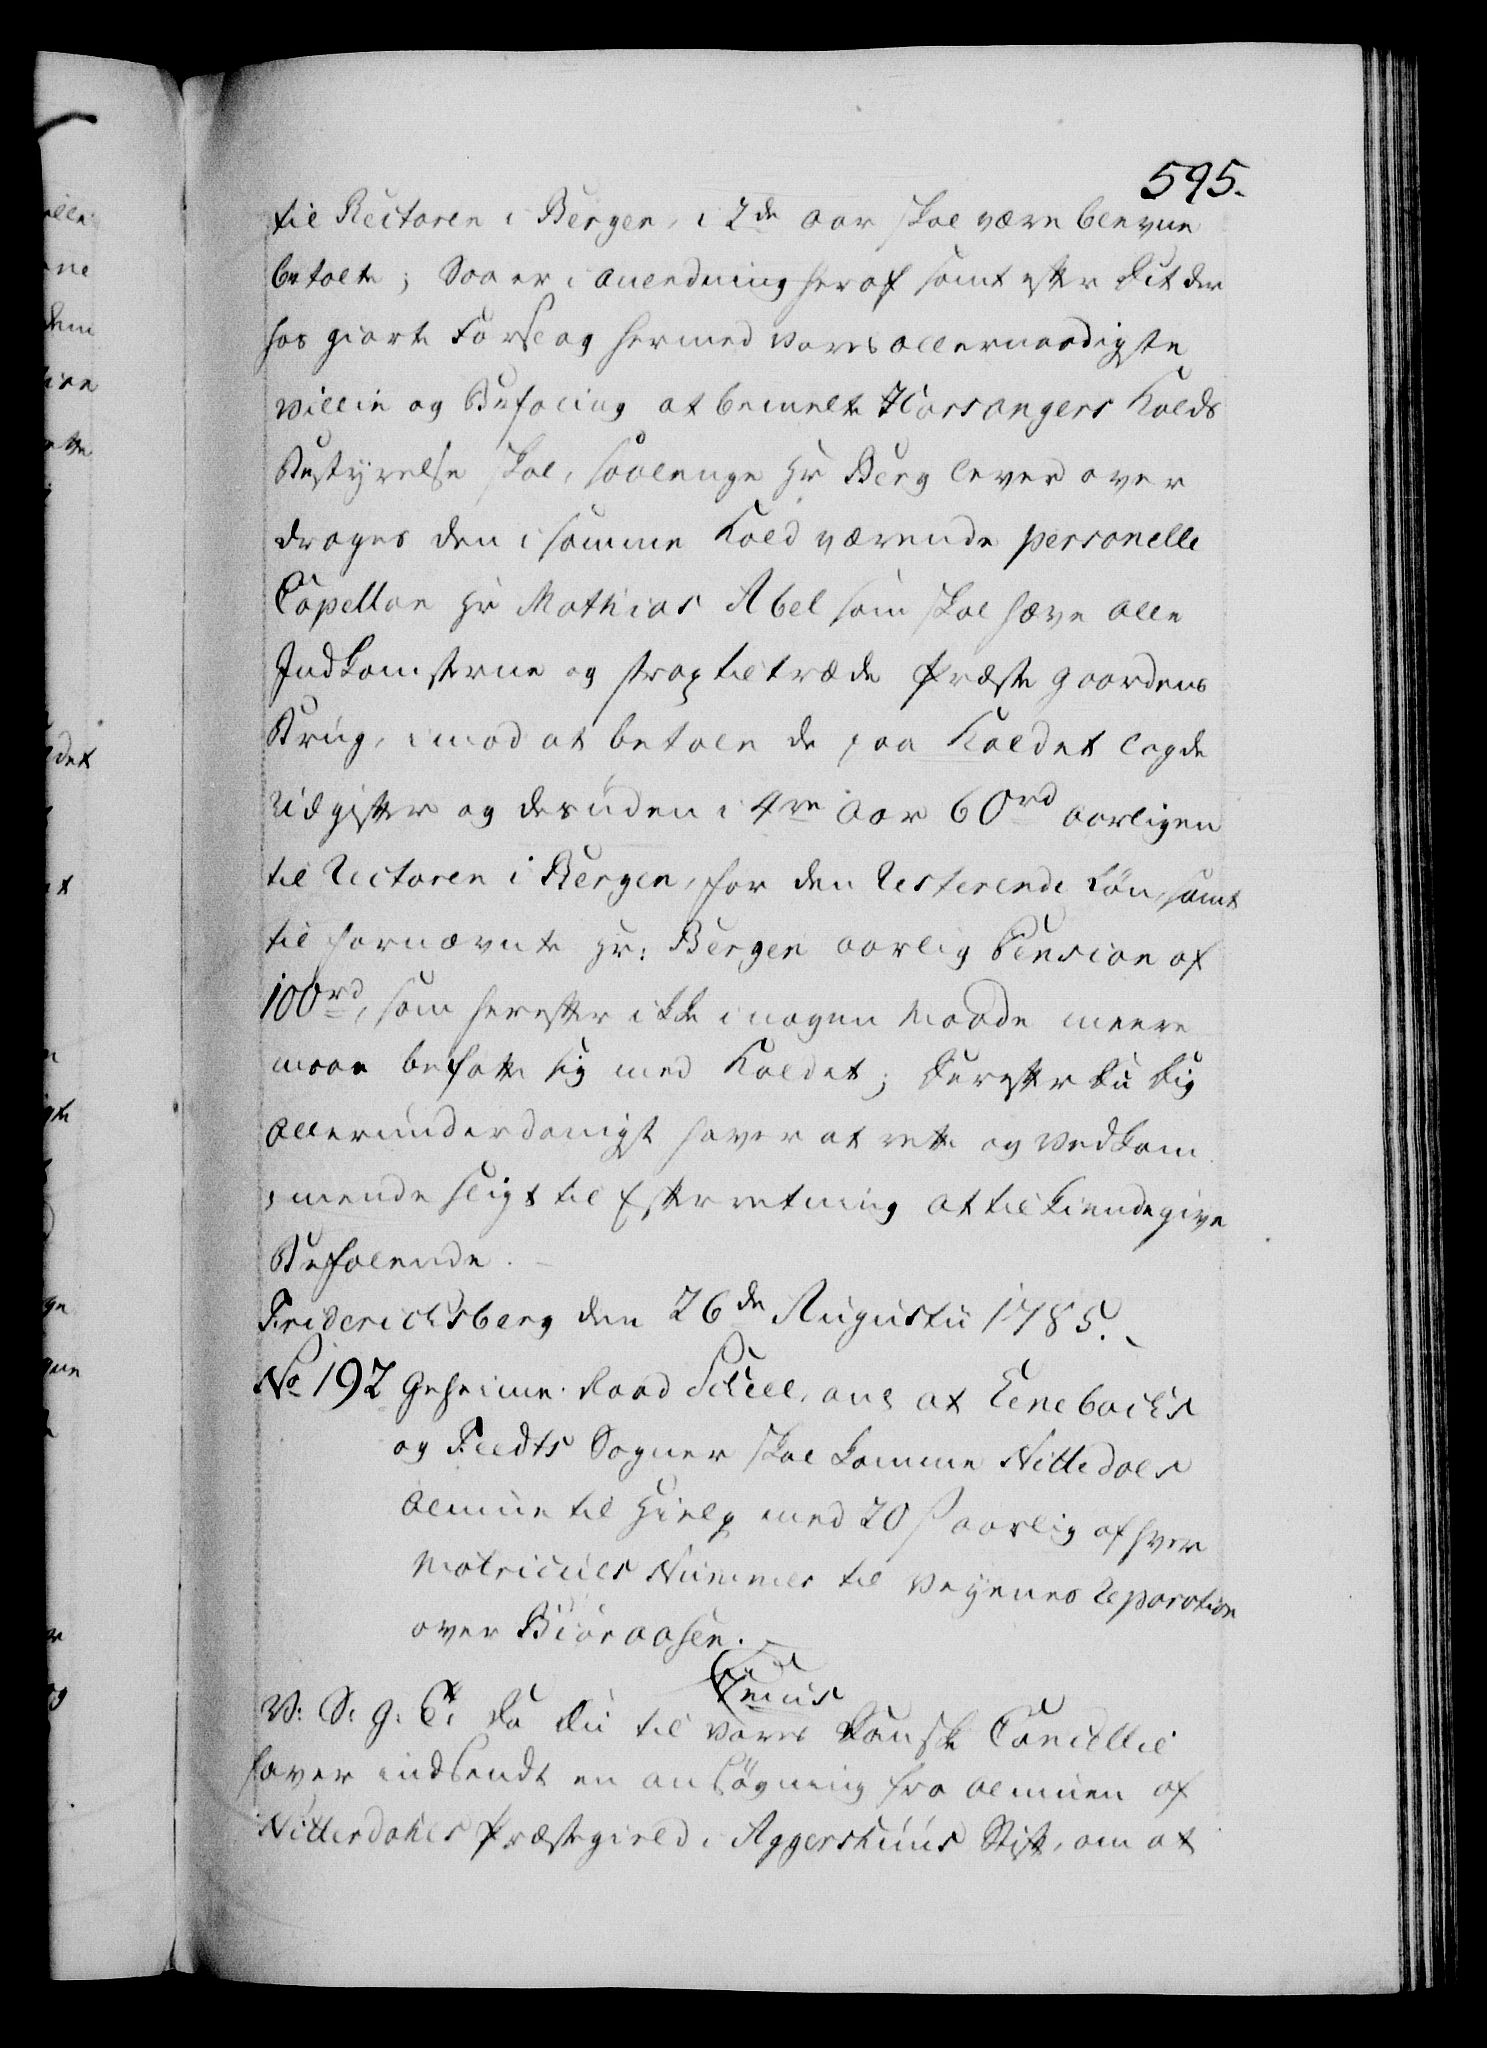 595.
til Rectoren i Bergen, i 2de Aar skal være blevne
betalt; Saa er i Anledning heraf samt efter dit der
hos giorte Forslag hermed Vores allernaadigste
Villie og Befaling at bemelte Horsangers Kalds
Bestyrelse skal, saalenge Hr Berg lever over
drages den i samme Kald værende personelle
Capellan Hr Mathias Abel som skal hæve alle
Indkomsterne og strax tiltræde Præste gaardens
Brug, imod at betale de paa Kaldet lagde
Udgifter og desuden i 4re Aar 60 rd aarligen
til Rectoren i Bergen, for den resterende Løn, samt
til fornævnte Hr: Bergen aarlig Pension af
100 rd, som herefter ikke i nogen Maade meere
maae befatte sig med Kaldet; Derefter du dig
allerunderdanigst haver at rette og Vedkom
mende sligt til Efterretning at tilkiendegive
Befalende.
Friderichsberg den 26de Augustii 1785.
No 192 Geheime Raad Scheel, ang at Enebachs
og Feedts Sogner skal komme Nittedals
Almue til Hielp med 20 s aarlig af hver
Matriculs Nummer til Veyenes Reparation
over Biøraasen.
V: S: G: T: Da du til Vores Danske Cancellie
haver indsendt en Ansøgning fra Almuen af
Nitterdahls Præstegield i Aggershuus Stift, om at